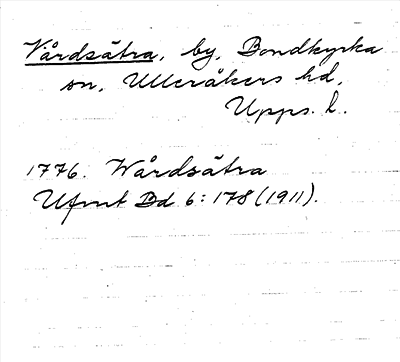 Vårdsätra, by, Bondkyrka
sn, Ulleråkers hd,
Upps. l.
1776. Wårdsätra
Ufmt Bd 6: 178 (1911).